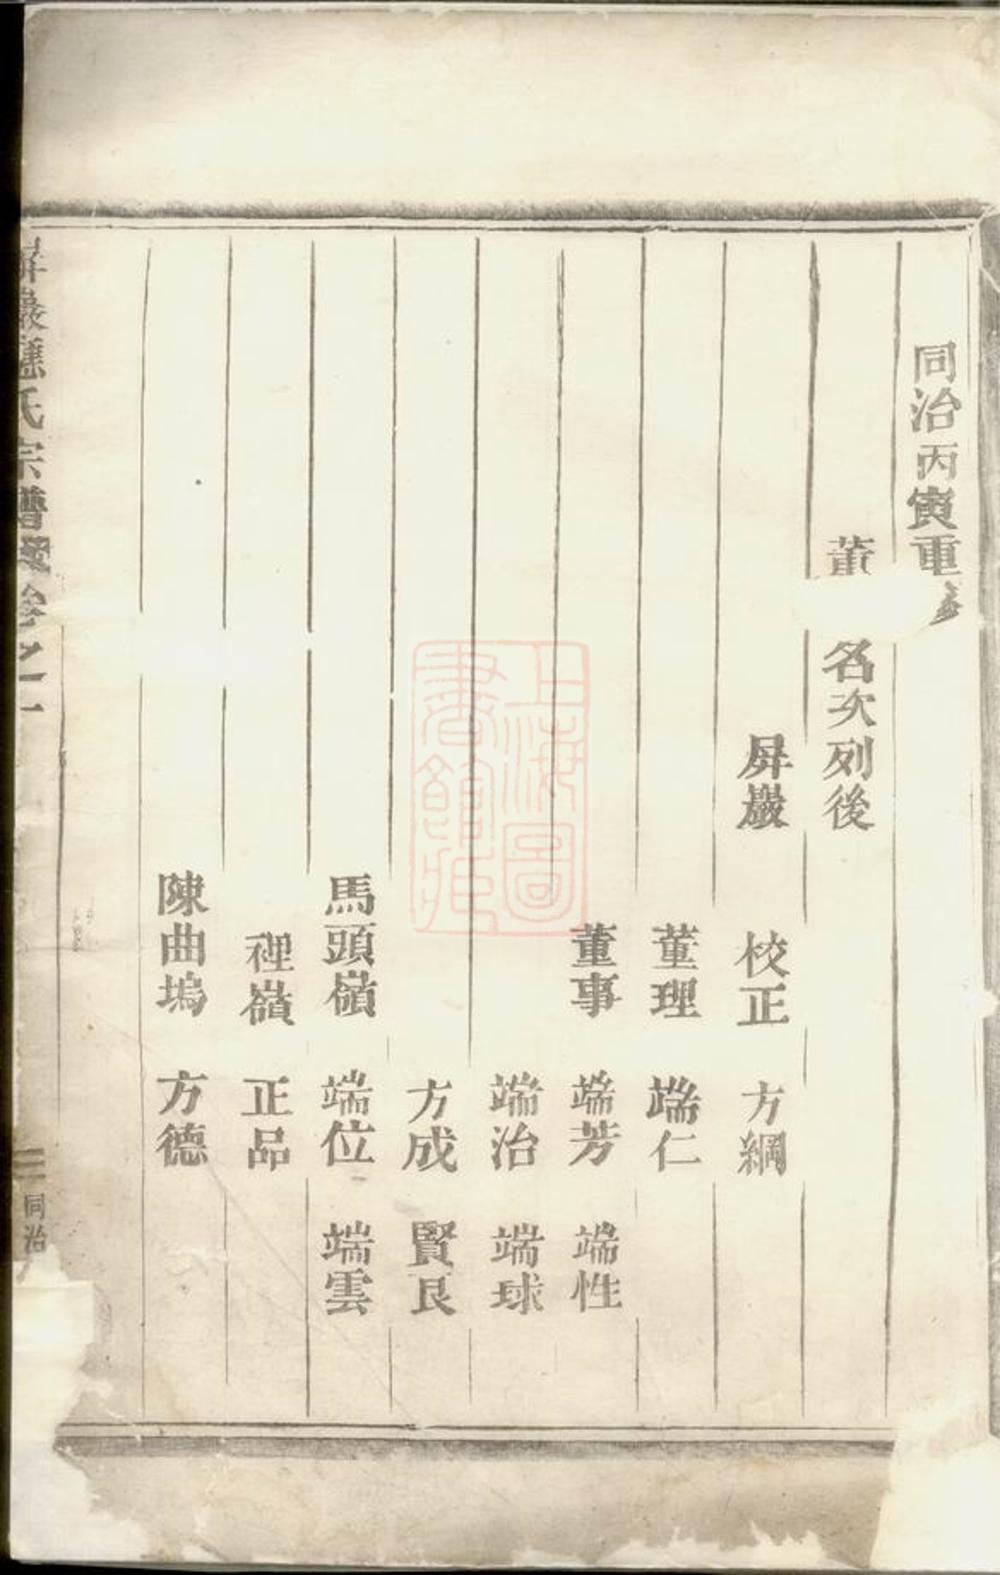 同治丙寅重修
董 名次列後
屏巖 校正 方綱
董理 端仁
董事 端芳 端性
端治 端球
方成 賢良
馬頭嶺 端位 端雲
裡嶺 正品
陳曲塢 方德
屏巖應氏宗譜 卷之一 二 同治
上海圖書館藏